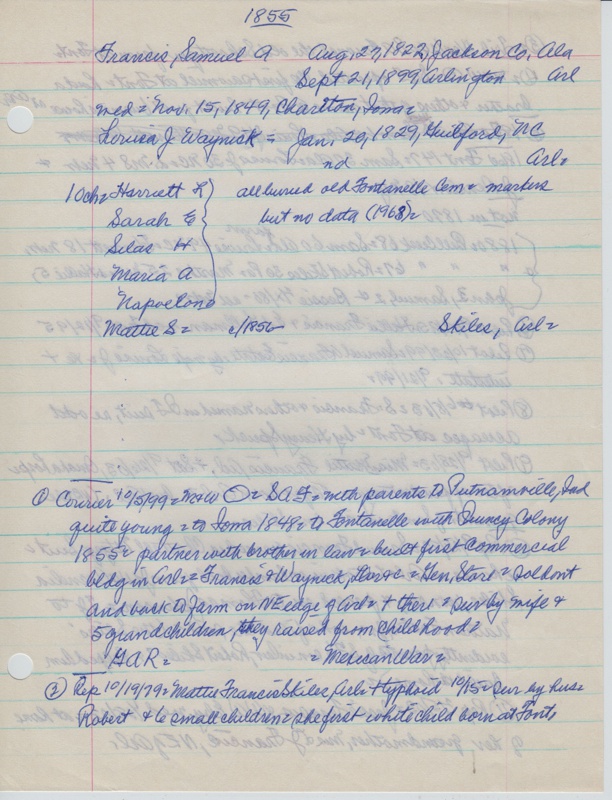 1855
Francis, Samuel A Aug, 27, 1822, Jackson Co, Ala
Sept 21, 1899, Arlington Arl
med = Nov. 15, 1849, Charlton, Iowa =
Lovica J Waynick = Jan, 20, 1829, Guilford, NC
nd Arl =
10ch = Harriett L all buried old Fontanelle Cem = markers
Sarah E but no data (1968) =
Silas H
Maria A
Napoelone
Mattie S = c/1856 Skiles, Arl =
① Courier 10/5/99 = O = SAF = with parents to Putnamville, Ind
quite young = to Iowa 1848 = to Fontanelle with Quincy Colony
1855 = partner with brother in law = built first commercial
bldg in Arl = Francis & Waynick, = Gen, Store = sold out
and back to farm on NE edge of Arl = + there = sur by wife &
5 grandchildren, they raised from childhood =
G.A.R. = = Mexican War =
② Rep 10/19/79 = Mattie Francis Skiles, Arl + typhoid 10/15 = sur by hus =
Robert & 6 small children = she first white child born at Font,